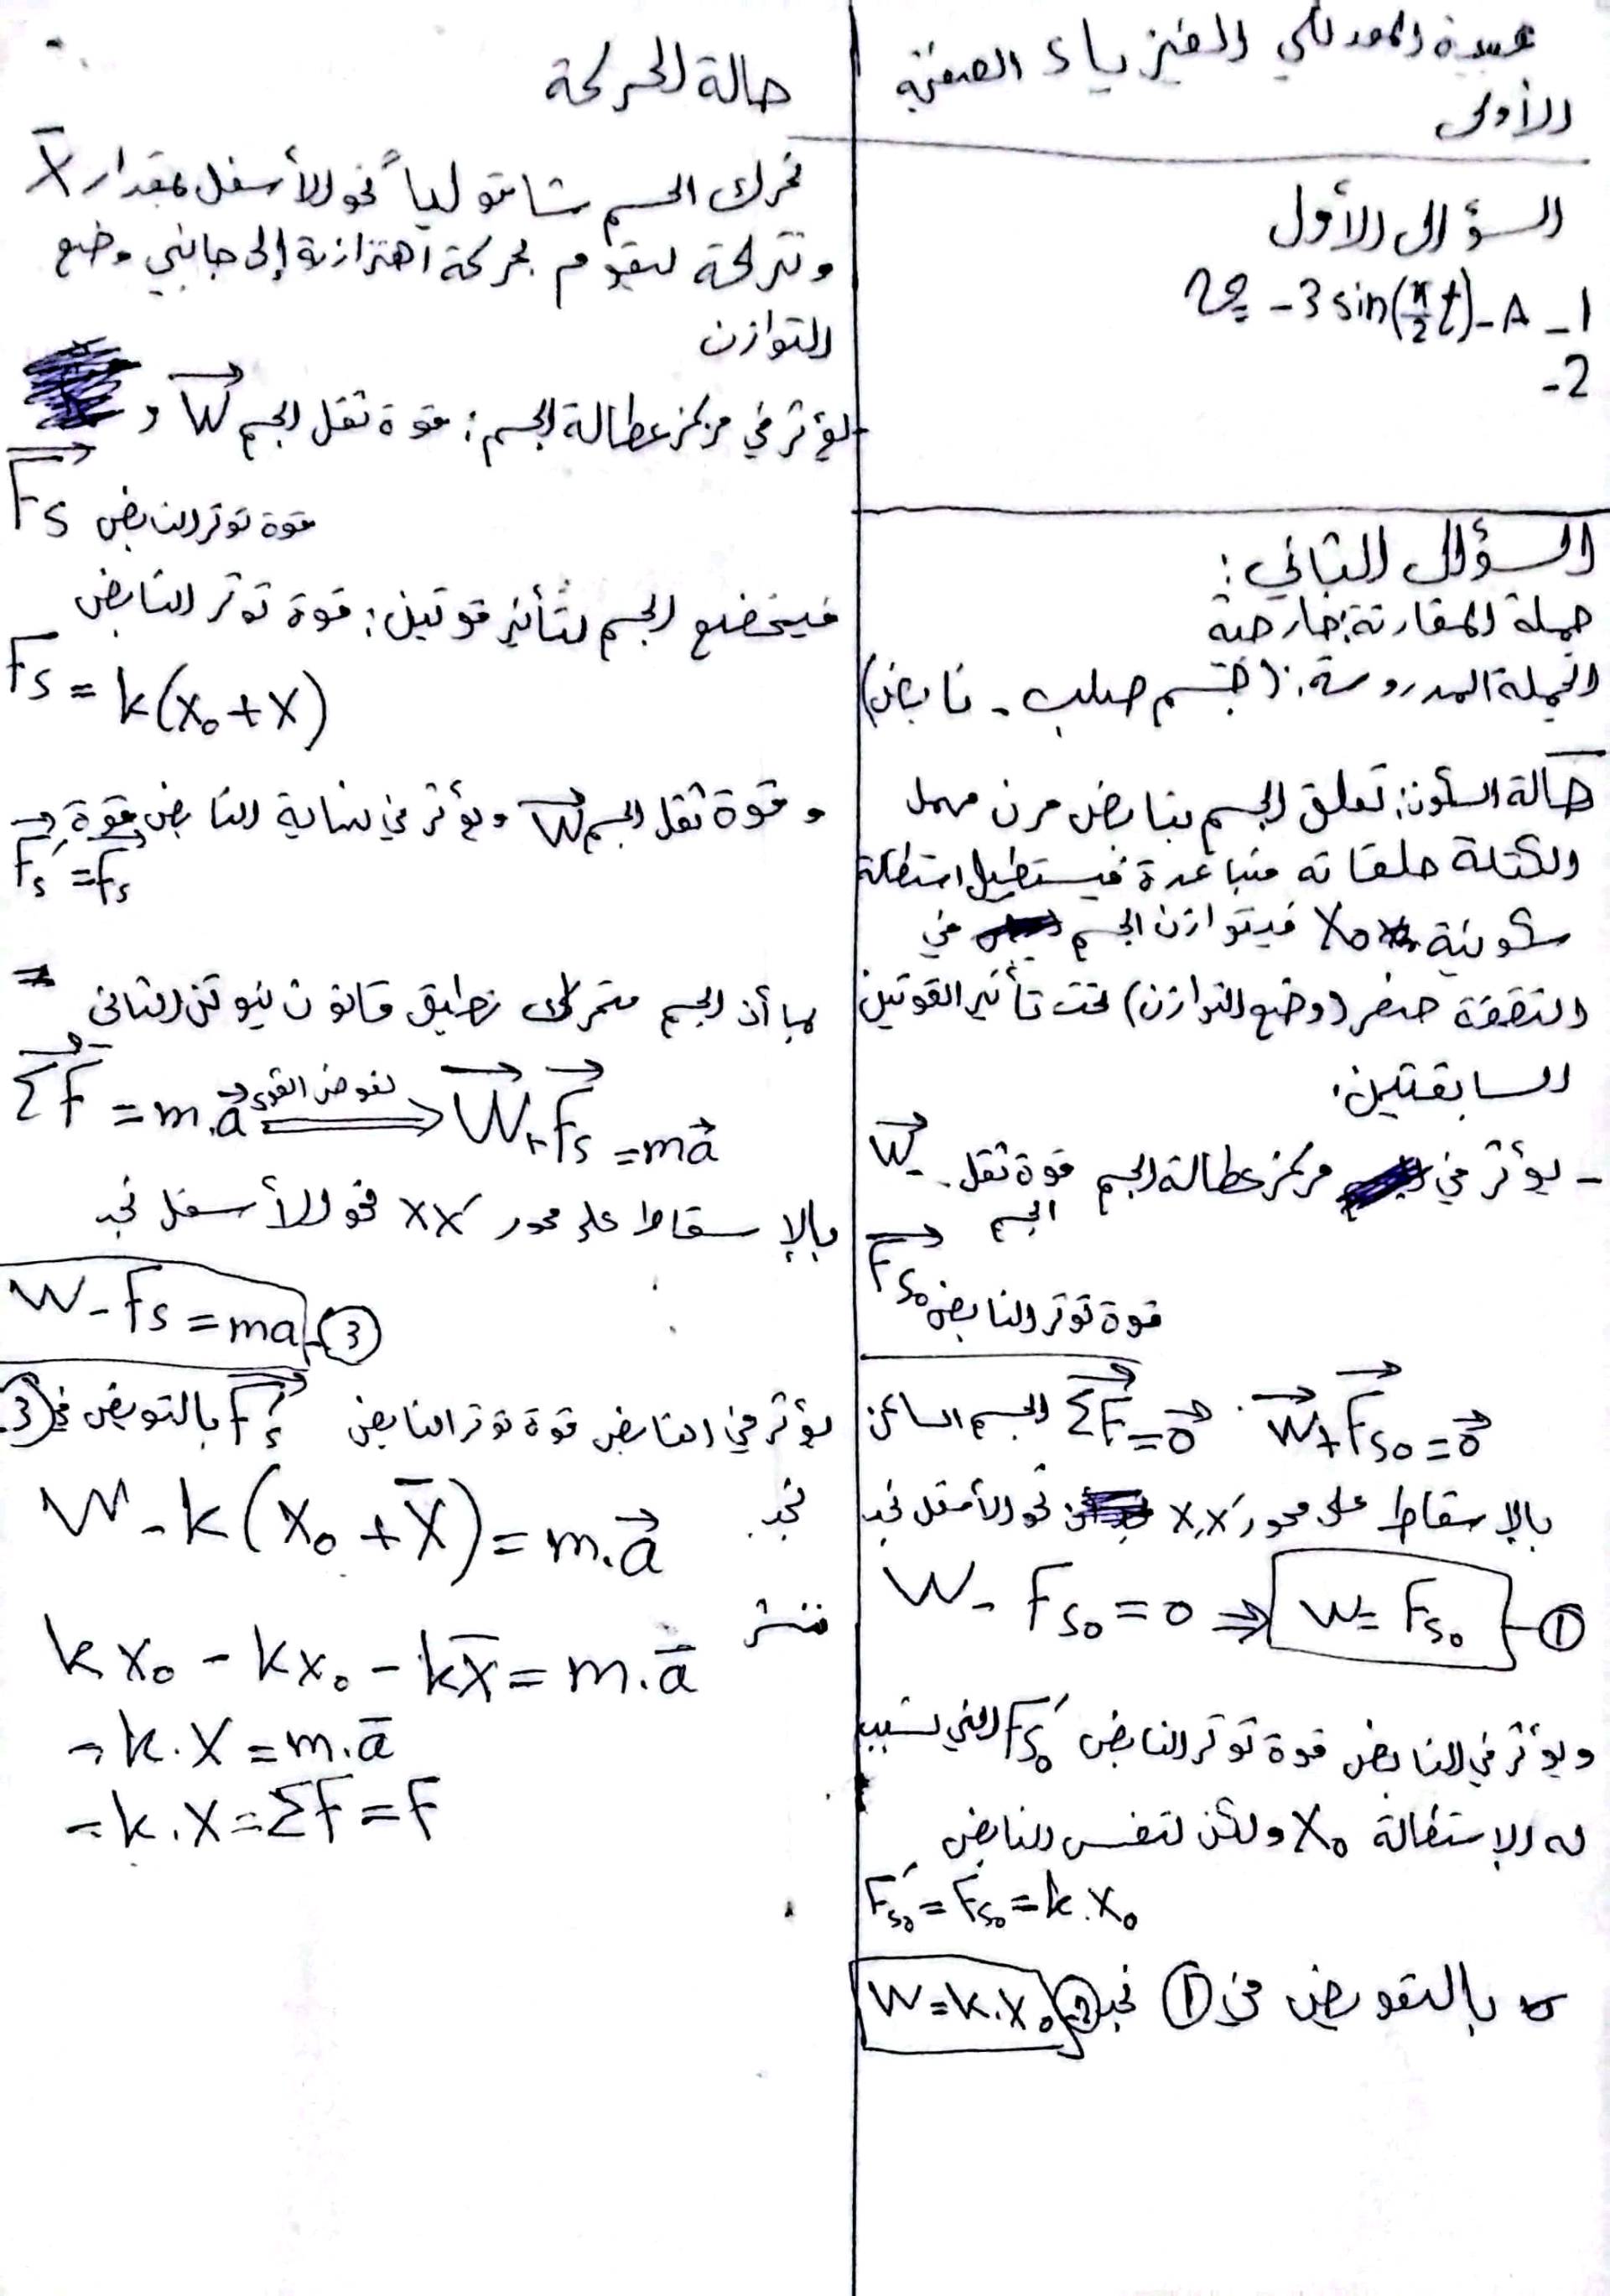 عبيدة المعدلكي الفيزياء الصفحة
الأولى
السؤال الأول
1 - A - v = -3 sin(π/2 t)
2-
السؤال الثاني:
جملة المقارنة: خارجية
الجملة المدروسة: (جسم صلب - نابض)
حالة السكون: نعلق الجسم بنابض مرن مهمل
الكتلة حلقاته متباعدة فيستطيل استطالة
سكونية X₀ فيتوازن الجسم في
النقطة صفر (وضع التوازن) تحت تأثير القوتين
السابقتين.
- يؤثر في مركز عطالة الجسم قوة ثقل الجسم W⃗
قوة توتر النابض F⃗s₀
الجسم ساكن ΣF⃗ = 0⃗ W⃗ + F⃗s₀ = 0⃗
بالإسقاط على محور x'x نحو الأسفل نجد
W - Fs₀ = 0 ⇒ W = Fs₀ - ①
ويؤثر في النابض قوة توتر النابض F's₀ التي تسبب
له الاستطالة X₀ ولكن لنفس النابض
F's₀ = Fs₀ = k.X₀
بالتعويض في ① نجد W = k.X₀ ②
حالة الحركة
نحرك الجسم شاقولياً نحو الأسفل بمقدار X̄
ونتركه ليقوم بحركة اهتزازية إلى جانبي وضع
التوازن
يؤثر في مركز عطالة الجسم: قوة ثقل الجسم W⃗ و
قوة توتر النابض F⃗s
فيخضع الجسم لتأثير قوتين: قوة توتر النابض
Fs = k(X₀ + X)
و قوة ثقل الجسم W⃗ ويؤثر في نهاية النابض قوة
F's = Fs
بما أن الجسم متحرك نطبق قانون نيوتن الثاني
ΣF⃗ = m.a⃗ نعوض القوى ⟹ W⃗ + F⃗s = ma⃗
بالإسقاط على محور xx' نحو الأسفل نجد
W - Fs = ma - ③
يؤثر في النابض قوة توتر النابض F⃗'s بالتعويض في ③
نجد W - k(X₀ + X̄) = m.a⃗
ننشر kX₀ - kX₀ - kX̄ = m.ā
- k.X = m.ā
- k.X = ΣF = F